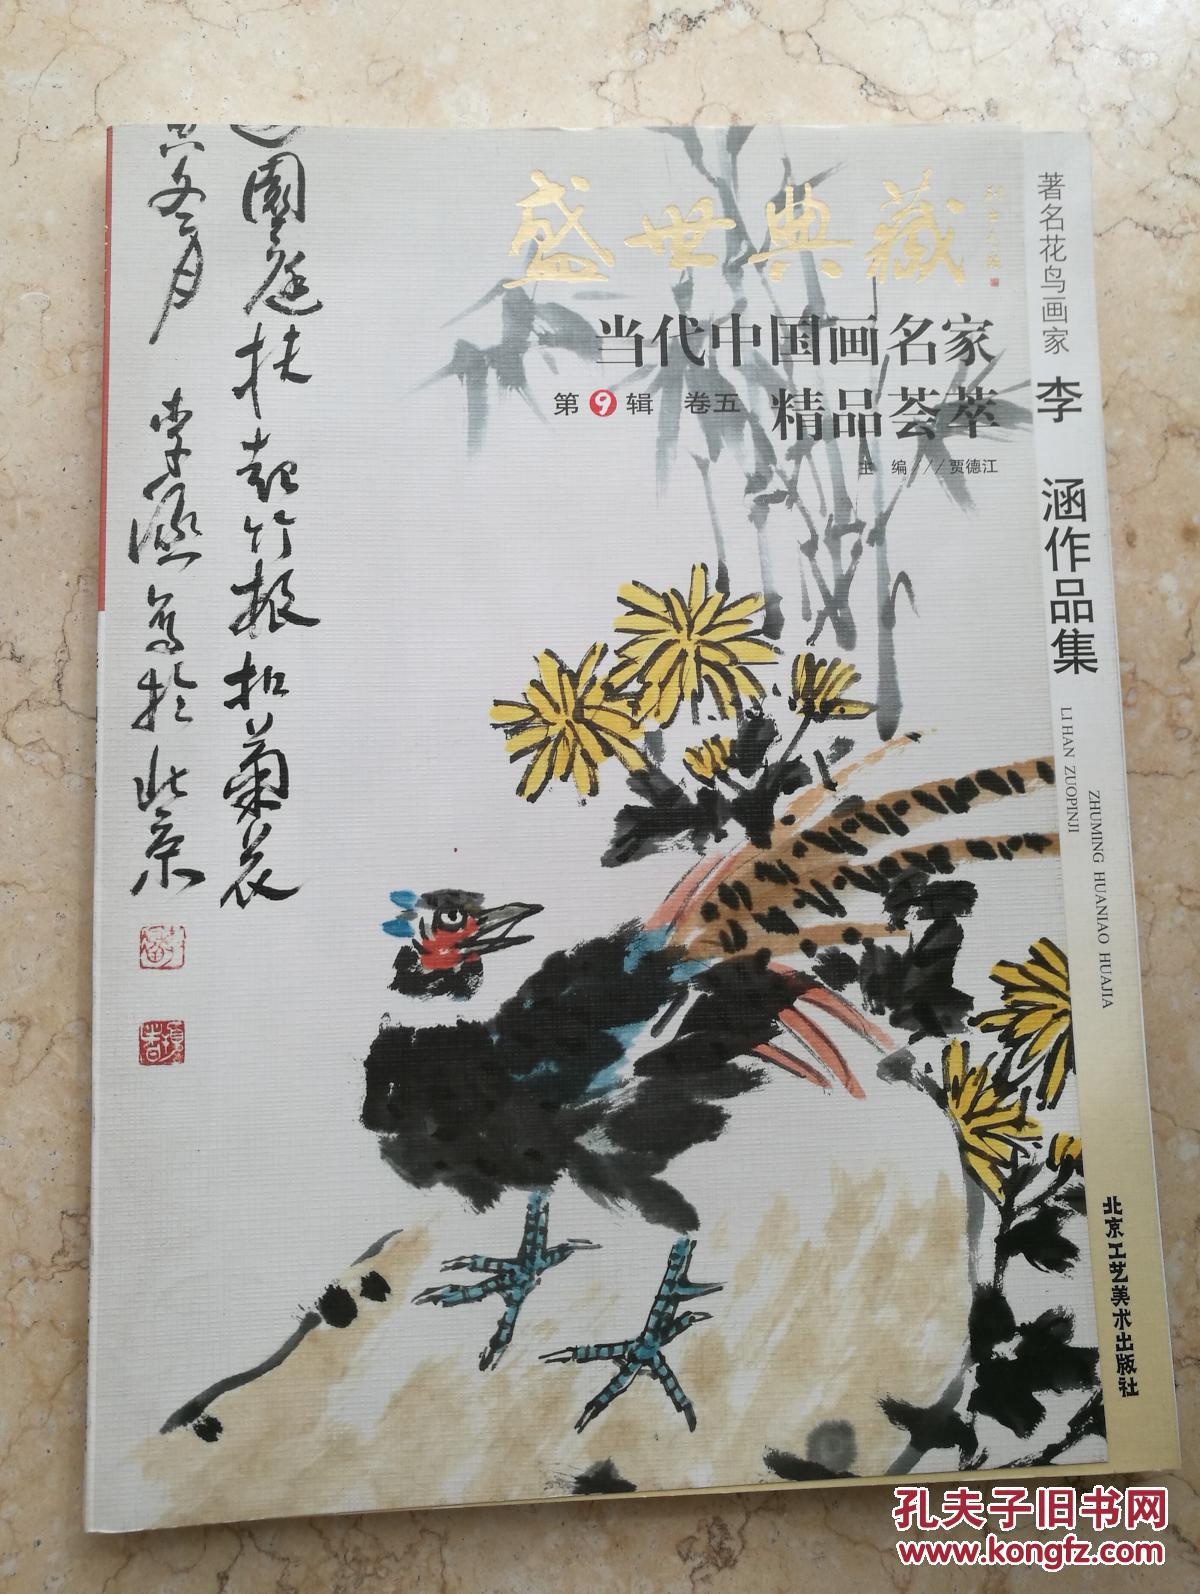 盛世典藏
当代中国画名家
第9辑 卷五 精品荟萃
主 编///贾德江
著名花鸟画家 李 涵作品集
LI HAN ZUOPINJI
ZHUMING HUANIAO HUAJIA
北京工艺美术出版社
園庭扶起竹根扣菊花
冬月 李涵写於北京
孔夫子旧书网
www.kongfz.com